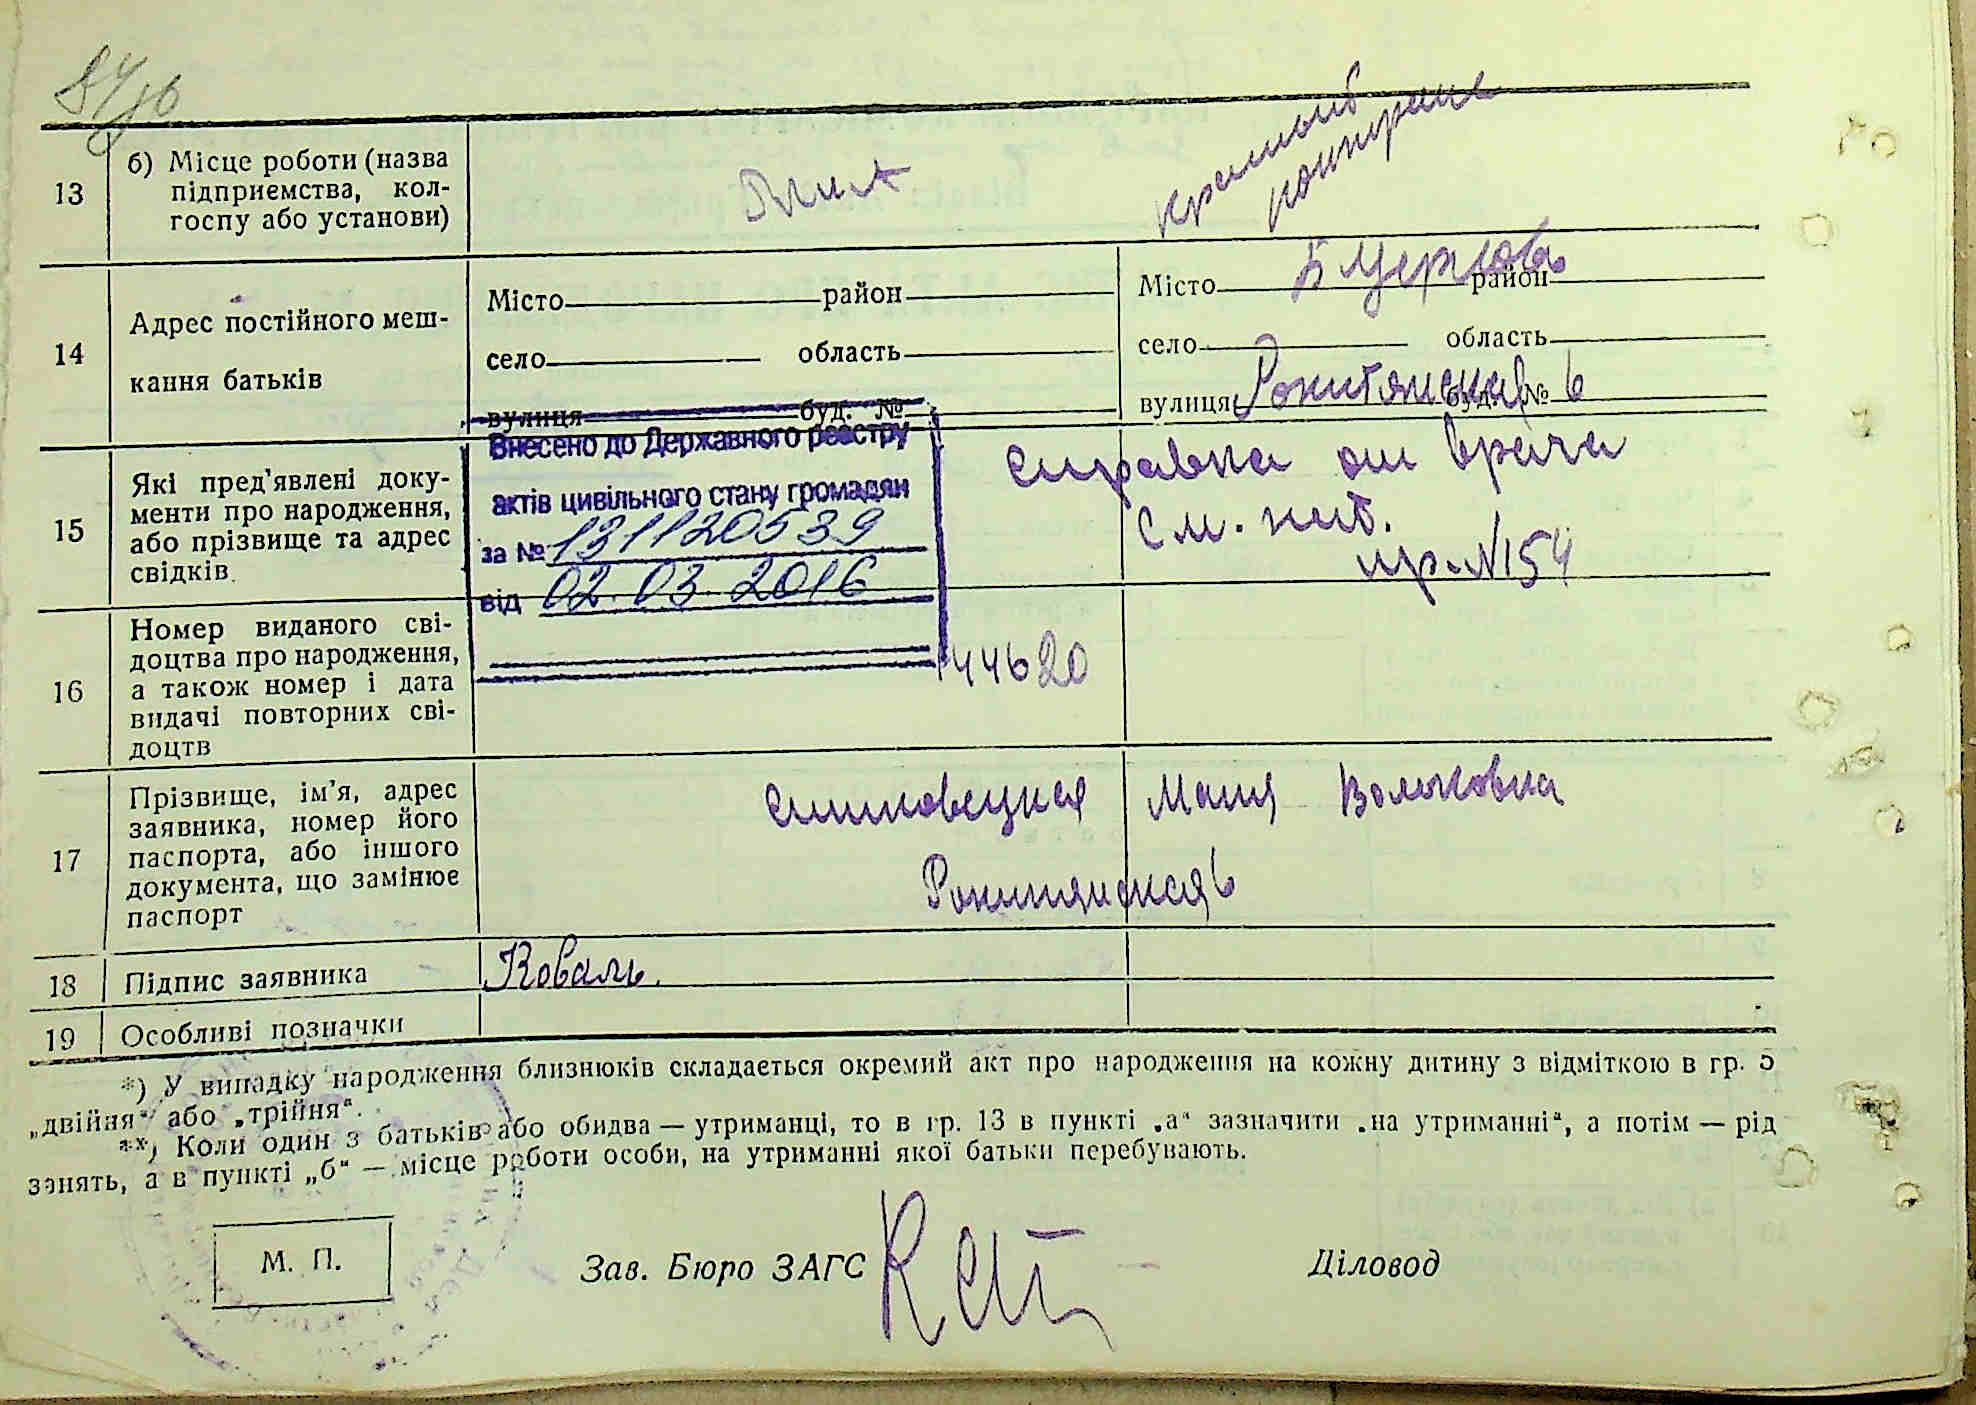 13
б) Місце роботи (назва
підприємства, кол-
госпу або установи)
14
Адрес постійного меш-
кання батьків
Місто район
село область
вулиця буд. №
Місто Б Церков район
село область
вулиця Рокитянская буд. № 6
15
Які пред'явлені доку-
менти про народження,
або прізвище та адрес
свідків.
Внесено до Державного реєстру
актів цивільного стану громадян
за № 131120539
від 02.03.2016
справка от врача
См. наб.
пр. N154
16
Номер виданого сві-
доцтва про народження,
а також номер і дата
видачі повторних сві-
доцтв
44620
17
Прізвище, ім'я, адрес
заявника, номер його
паспорта, або іншого
документа, що замінює
паспорт
Вольковна
Рокитянская 6
18
Підпис заявника
Коваль.
19
Особливі позначки
*) У випадку народження близнюків складається окремий акт про народження на кожну дитину з відміткою в гр. 5
„двійня“ або „трійня“.
**) Коли один з батьків або обидва — утриманці, то в гр. 13 в пункті „а“ зазначити „на утриманні“, а потім — рід
занять, а в пункті „б“ — місце роботи особи, на утриманні якої батьки перебувають.
М. П.
Зав. Бюро ЗАГС
Діловод